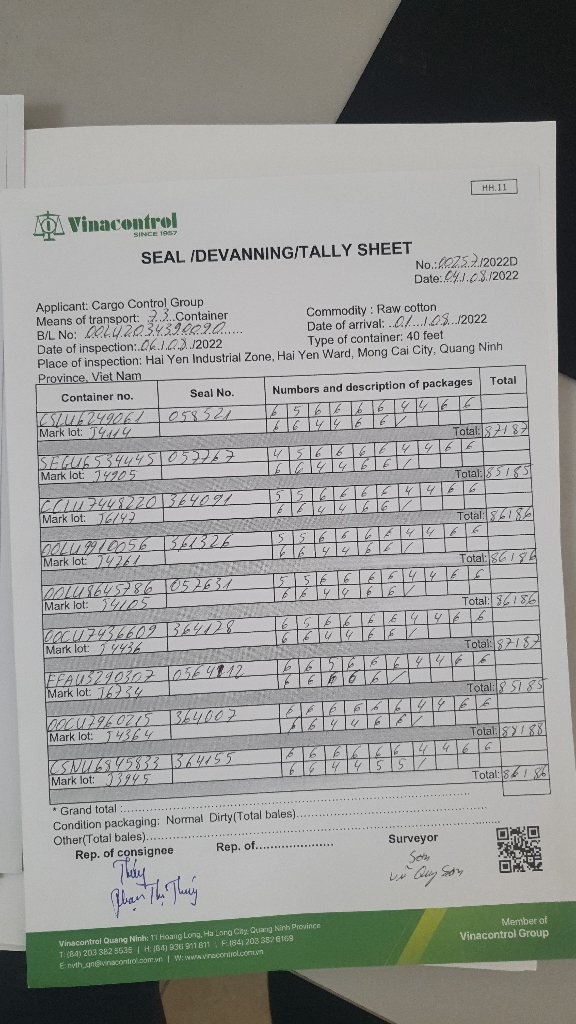 HH.11
Vinacontrol
SINCE 1957
SEAL /DEVANNING/TALLY SHEET
No.:00257/2022D
Date:04/.08/2022
Applicant: Cargo Control Group
Means of transport: 33 Container
Commodity : Raw cotton
B/L No: OOLU2034390090
Date of arrival: 01/08/2022
Date of inspection: 04/08/2022
Type of container: 40 feet
Place of inspection: Hai Yen Industrial Zone, Hai Yen Ward, Mong Cai City, Quang Ninh
Province, Viet Nam
Container no. Seal No. Numbers and description of packages Total
CSLU6249061 058521 6 5 6 6 6 6 4 4 6 6
6 6 4 4 6 6 /
Mark lot: J4114 Total: 87187
SEGU6534445 057767 4 5 6 6 6 6 4 4 6 6
6 6 4 4 6 6 /
Mark lot: J4905 Total: 85185
CCLU7448220 364091 5 5 6 6 6 6 4 4 6 6
6 6 4 4 6 6 /
Mark lot: J6147 Total: 86186
OOLU9910056 361326 5 5 6 6 6 6 4 4 6 6
6 6 4 4 6 6 /
Mark lot: J4261 Total: 86186
OOLU8645786 057631 5 5 6 6 6 6 4 4 6 6
6 6 4 4 6 6 /
Mark lot: J4105 Total: 86186
OOCU7436609 364178 6 5 6 6 6 6 4 4 6 6
6 6 4 4 6 6 /
Mark lot: J4436 Total: 87187
FFAU3290307 0564112 6 6 5 6 6 6 4 4 6 6
6 6 6 6 6 /
Mark lot: J6734 Total: 85185
OOCU7960215 364007 6 6 6 6 6 6 4 4 6 6
6 6 4 4 6 6 /
Mark lot: J4364 Total: 88188
CSNU6845833 364155 6 6 6 6 6 6 4 4 6 6
6 6 4 4 5 5 /
Mark lot: J3945 Total: 86186
* Grand total :
Condition packaging: Normal Dirty(Total bales)
Other(Total bales)
Rep. of consignee Rep. of Surveyor
Thúy Sơn
Phạm Thị Thúy Vũ Quý Sơn
Vinacontrol Quang Ninh: 11 Hoang Long, Ha Long City, Quang Ninh Province
T: (84) 203 382 5535 | H: (84) 936 911 811 | F: (84) 203 382 6169
E: nvth_qn@vinacontrol.com.vn | W: www.vinacontrol.com.vn
Member of
Vinacontrol Group